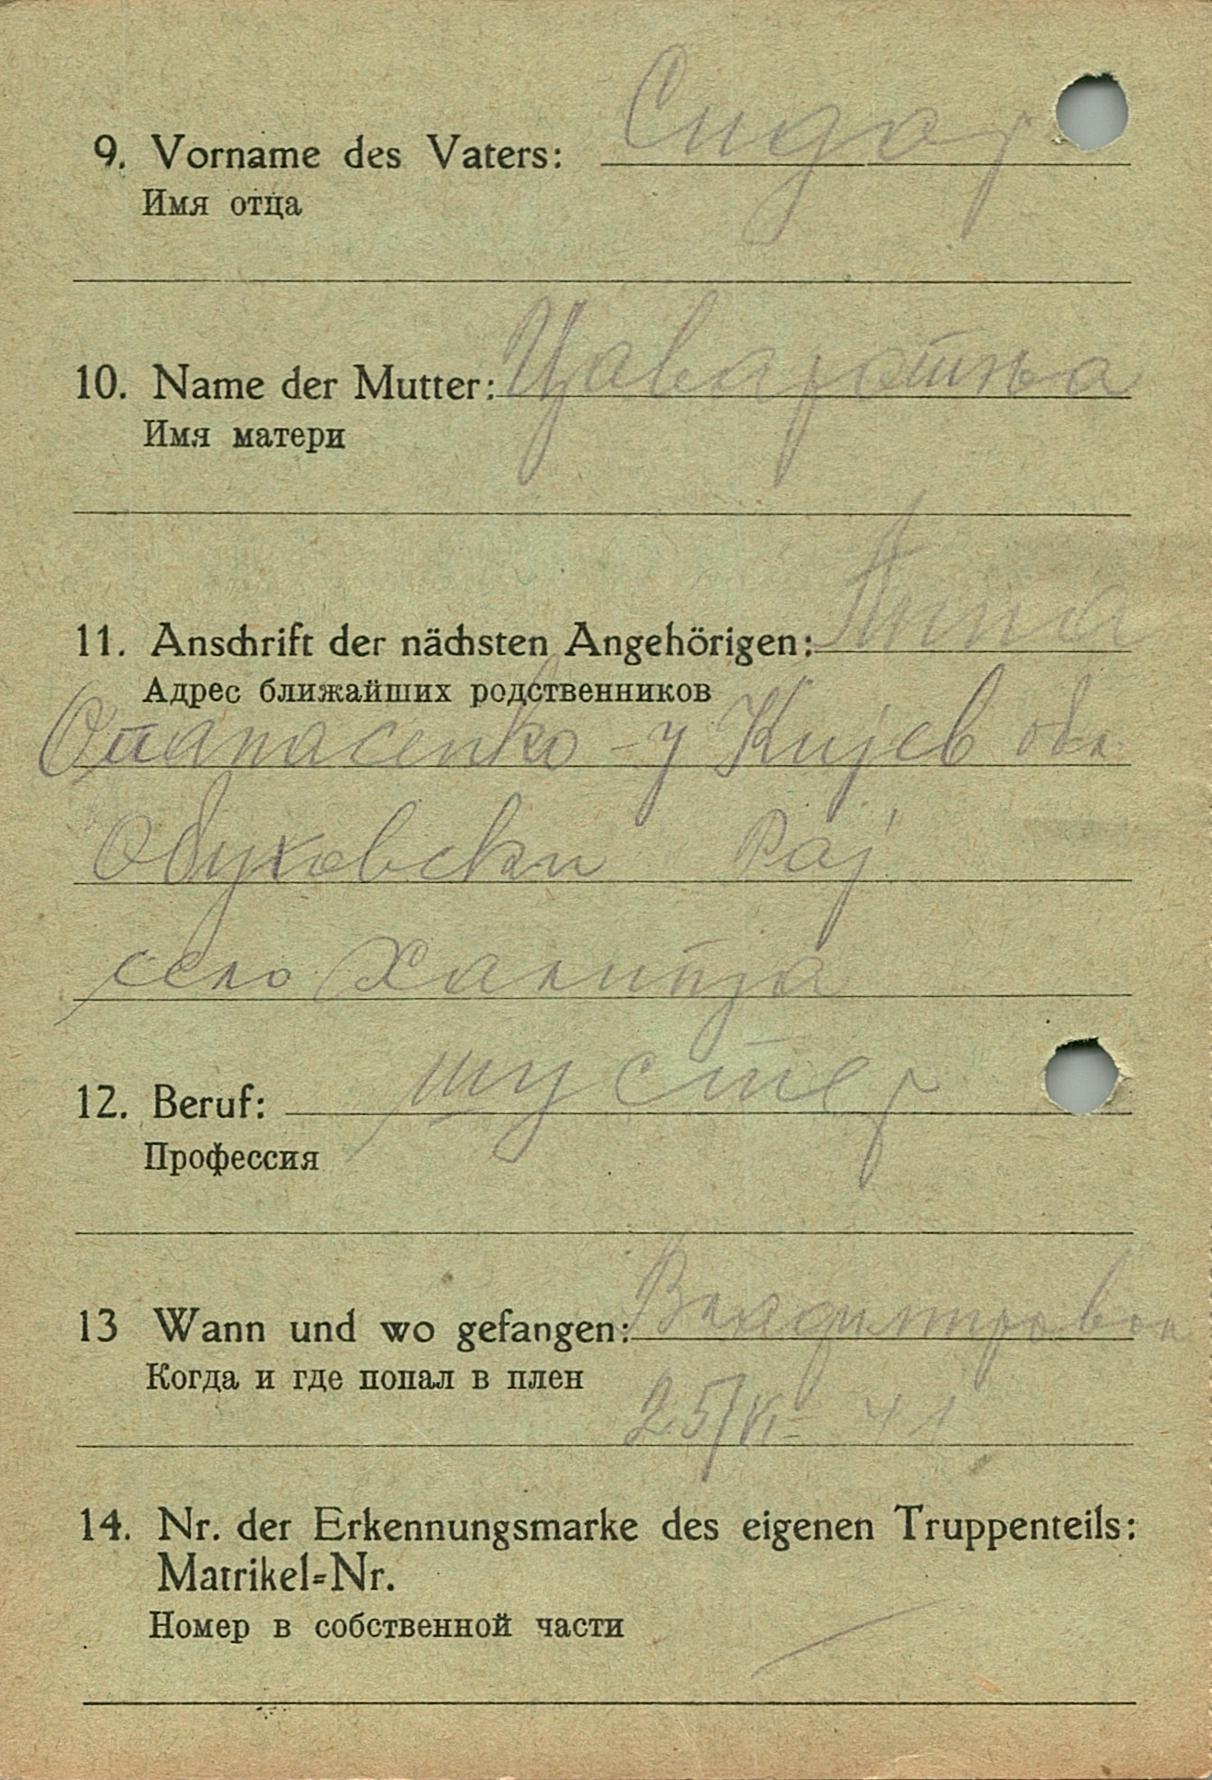 9. Vorname des Vaters: Сидор
Имя отца
10. Name der Mutter:
Имя матери
11. Anschrift der nächsten Angehörigen: Анна
Адрес ближайших родственников
Опанасенко - у Кијев обл
Обуховски Рај
село Халипја
12. Beruf: шустер
Профессия
13 Wann und wo gefangen:
Когда и где попал в плен
14. Nr. der Erkennungsmarke des eigenen Truppenteils:
Matrikel-Nr.
Номер в собственной части